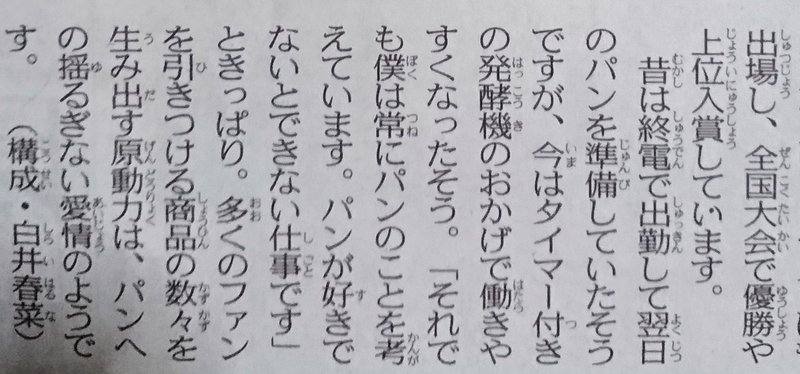 出場し、全国大会で優勝や
上位入賞しています。
昔は終電で出勤して翌日
のパンを準備していたそう
ですが、今はタイマー付き
の発酵機のおかげで働きや
すくなったそう。「それで
も僕は常にパンのことを考
えています。パンが好きで
ないとできない仕事です」
ときっぱり。多くのファン
を引きつける商品の数々を
生み出す原動力は、パンへ
の揺るぎない愛情のようで
す。（構成・白井春菜）